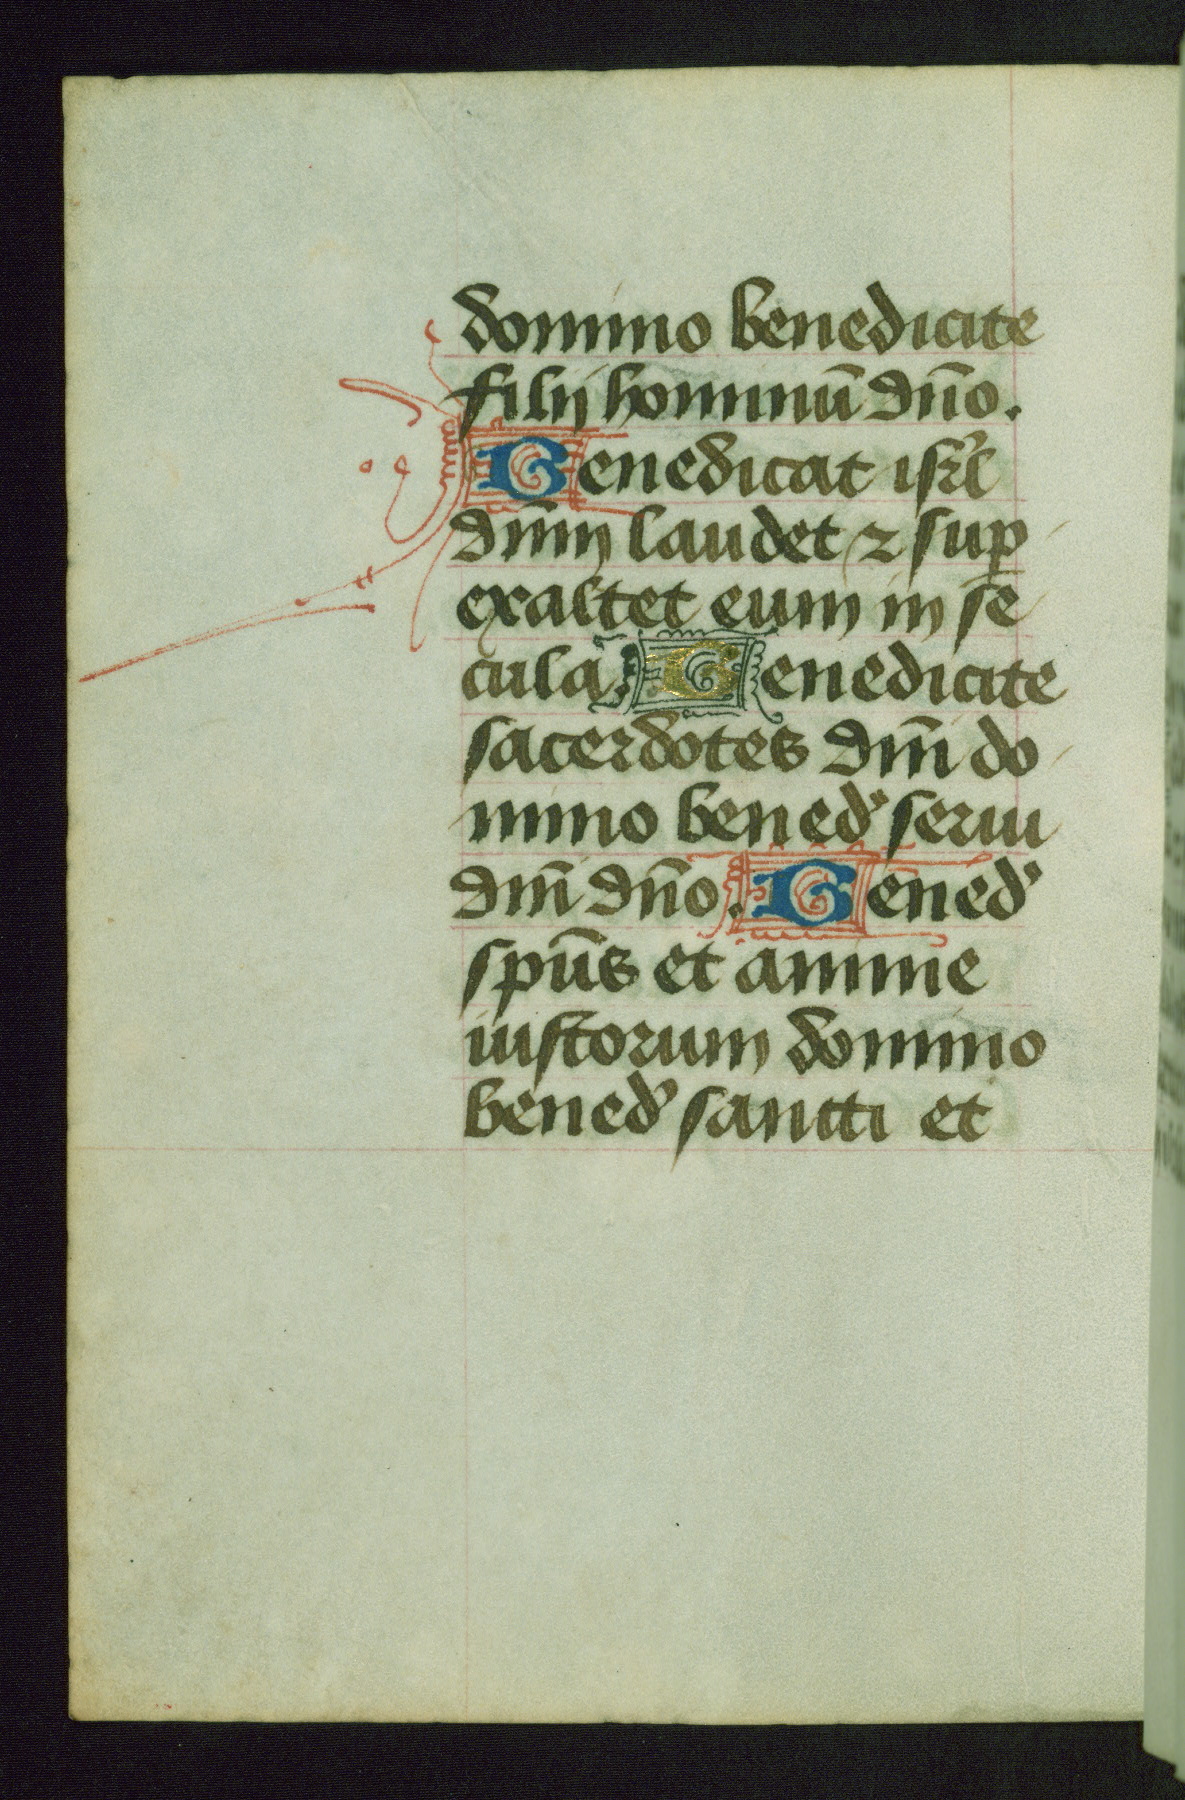 domino benedicite
filij hominū dn̄o.
Benedicat isrl̄
dn̄m laudet ⁊ sup̲
exaltet eum in se
cula. Benedicite
sacerdotes dn̄i do
mino bened' serui
dn̄i dn̄o. Bened'
spūs et anime
iustorum domino
bened' sancti et